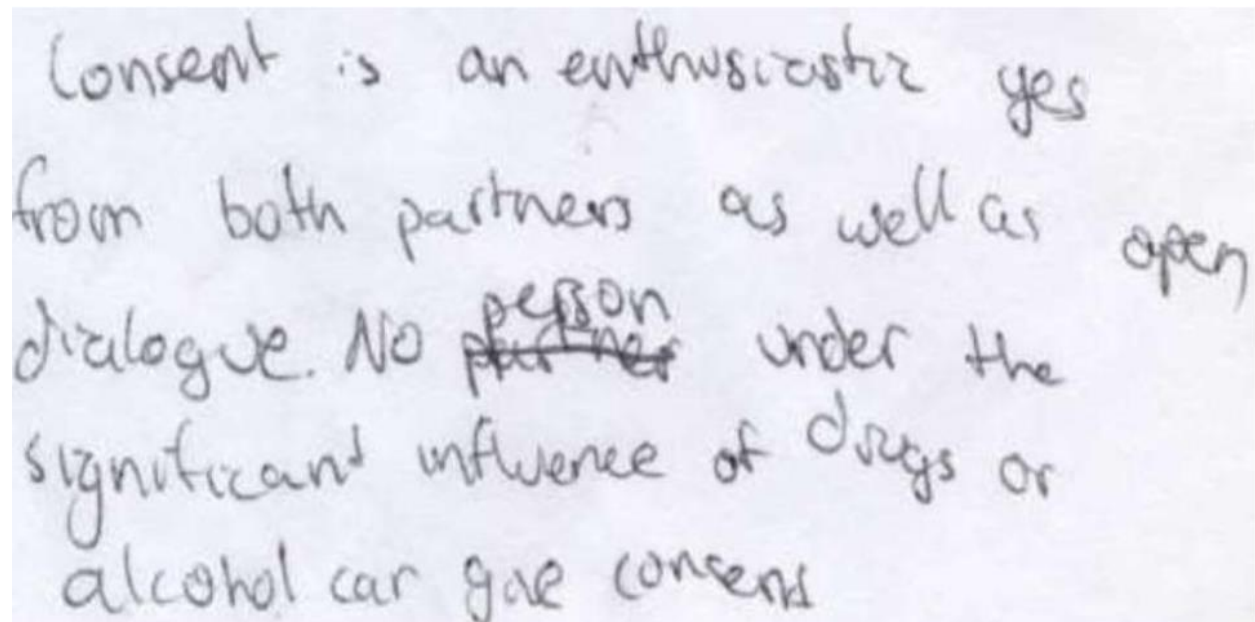 Consent is an enthusiastic yes
from both partners as well as open
dialogue. No person under the
significant influence of drugs or
alcohol can give consent